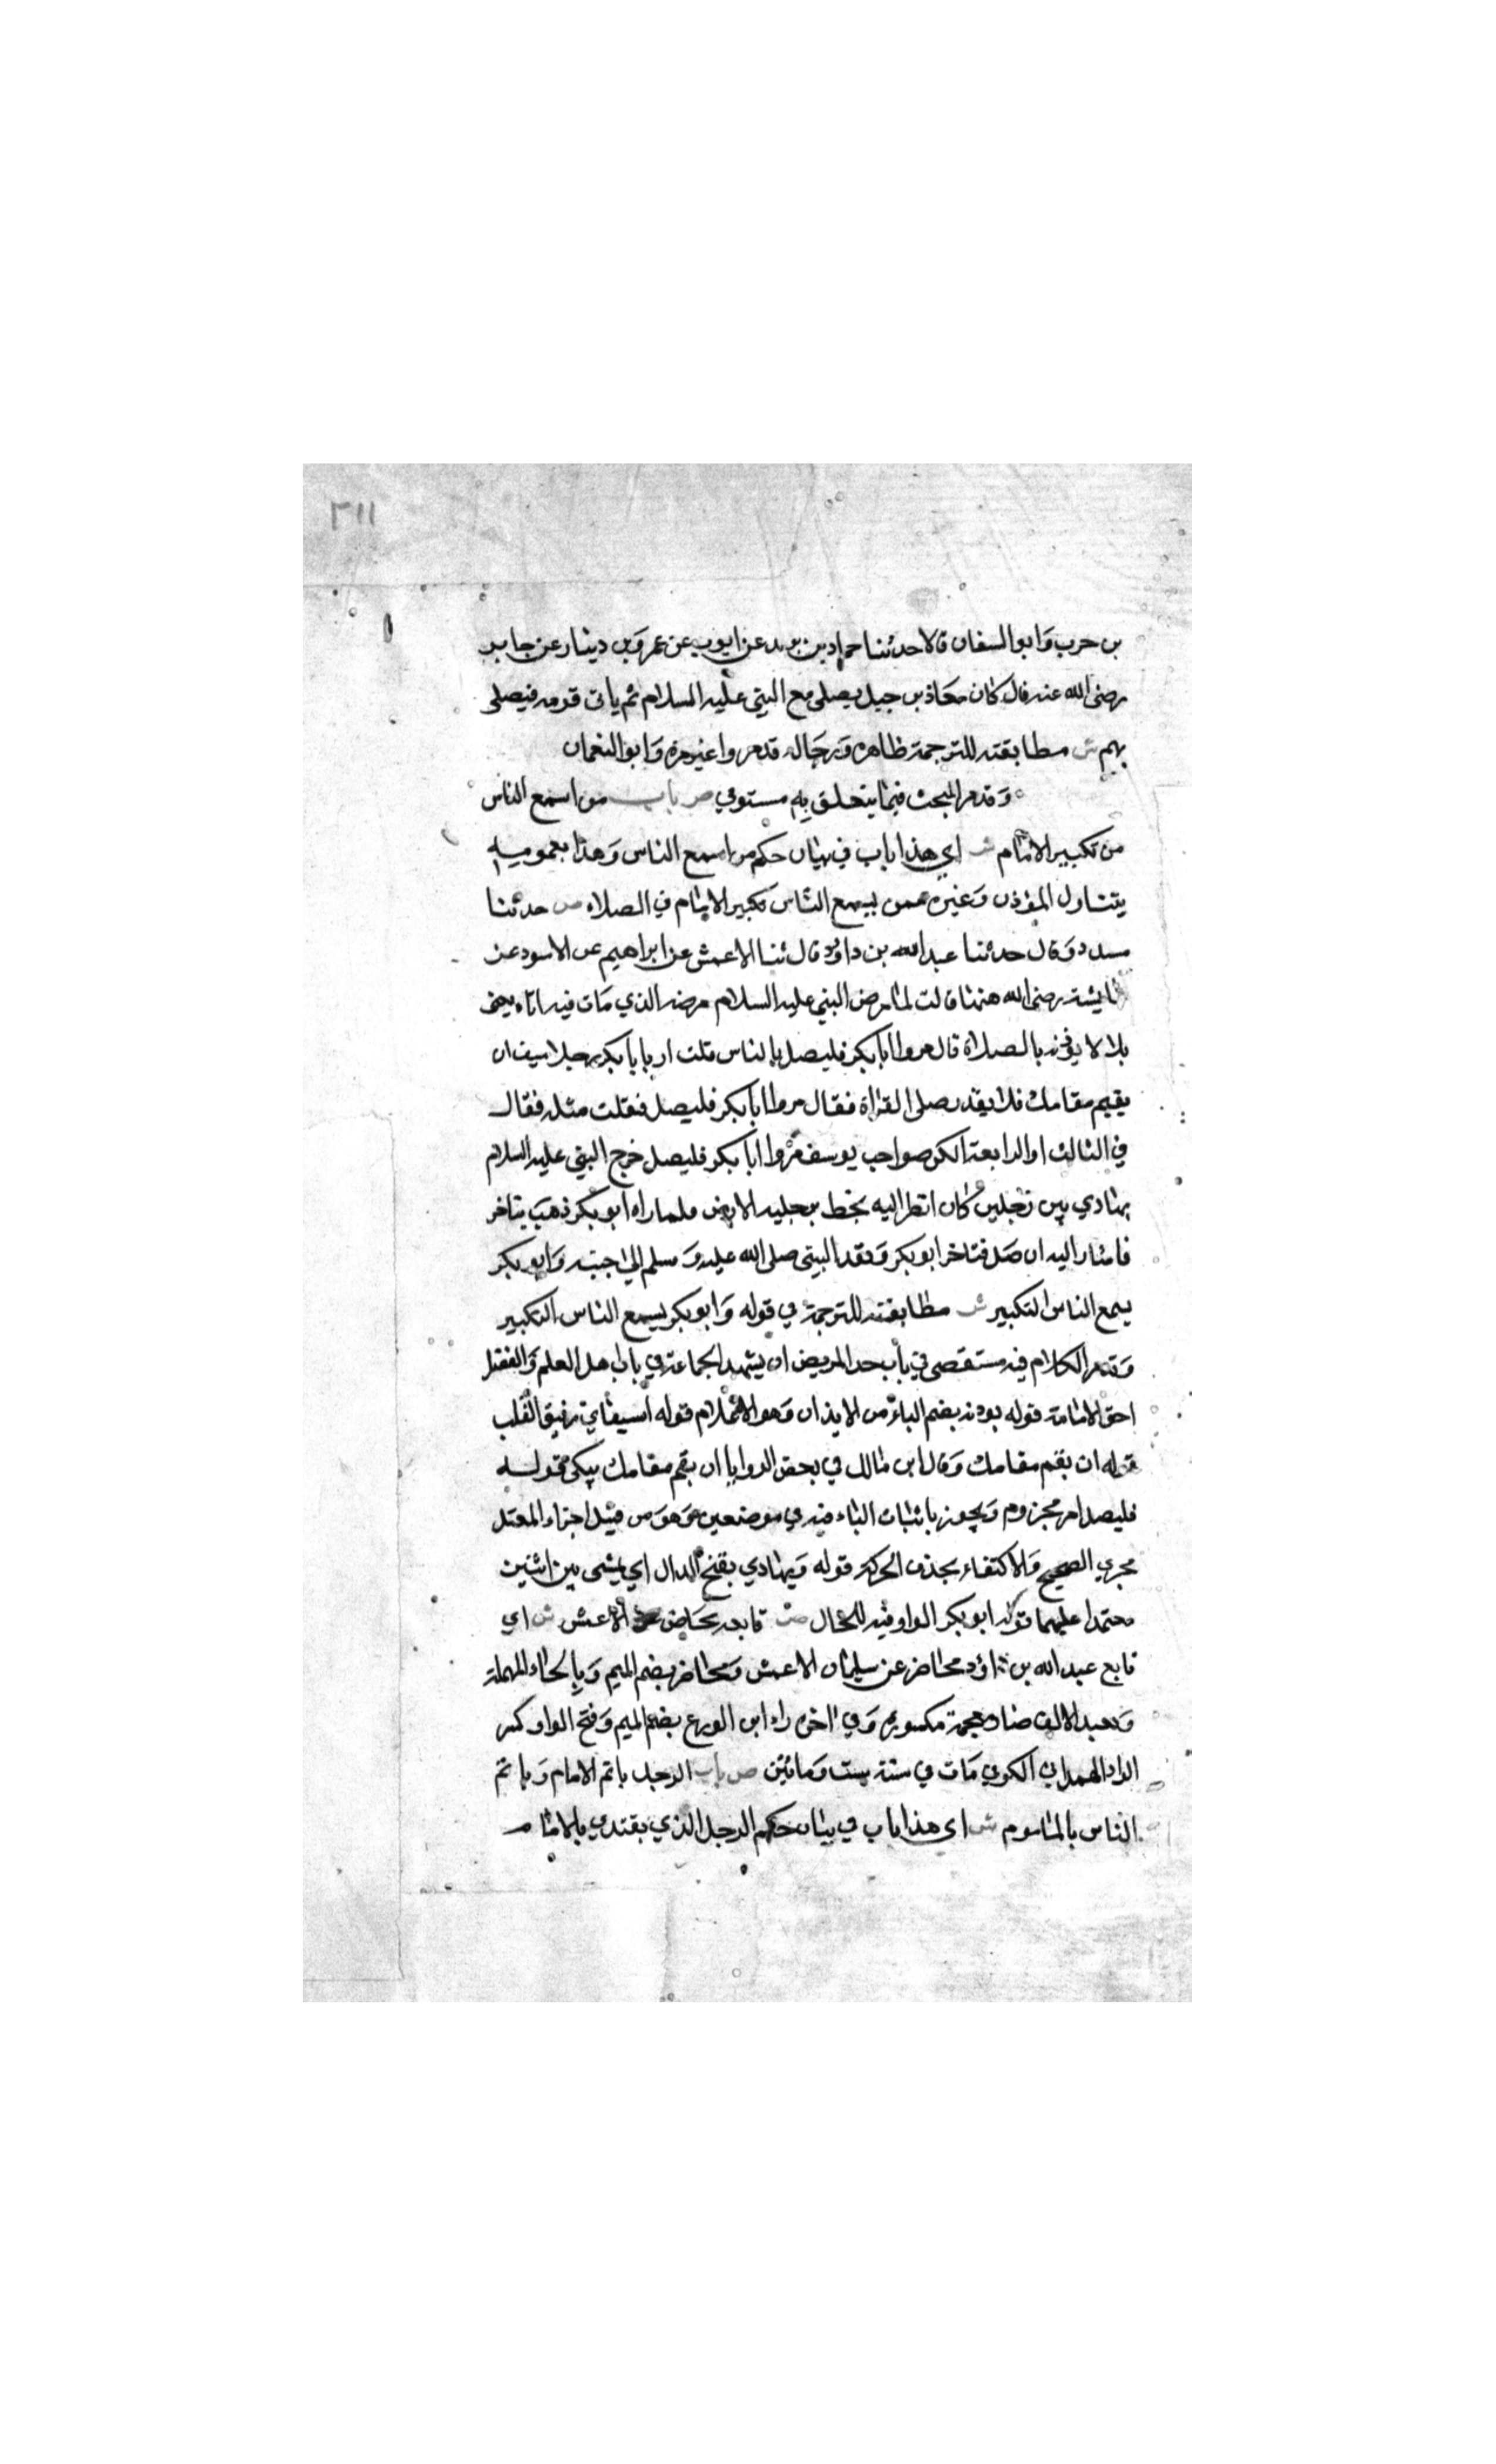 ٣١١
بن حرب وَابوالسفان قالا حدثنا حماد بن يريد عن ايوب عن عمر وَبن دينار عن جابر
رضى الله عنه قال كان معاذ بن جبل يصلى مع النبى عليه السلام ثم ياتى قومه فيصلى
بهم ش مطابقته للترجمة ظاهرة وَرجاله قدمروا غير مرة وَابو النعمان
وَقدمر المبحث فيما يتعلق به مستوفي ص باب من اسمع الناس
من تكبير الامام ش اي هذا باب في بيان حكم من اسمع الناس وَهذا بعموميه
يتناول المؤذن وَغيره ممن يسمع الناس تكبير الامام في الصلاه ص حدثنا
مسدد وَقال حدثنا عبدالله بن داود قال ثنا الاعمش عن ابراهيم عن الاسود عن
عايشة رضى الله عنها قالت لما مرض النبي عليه السلام مرضه الذي مات فيه اتاه يعنى
بلالا يؤذنه بالصلاة قال مروا ابابكر فليصل بالناس قلت ان ابا بكر رجل اسيف ان
يقيم مقامك فلا يقدر على القراة فقال مروا ابا بكر فليصل فقلت مثله فقال
في الثالث او الرابعة انكن صواحب يوسف مروا ابا بكر فليصل خرج النبي عليه السلام
يهادي بين رجلين كان انظر اليه يخط برجليه الارض فلما راه ابو بكر ذهب يتاخر
فاشار اليه ان صَل فتاخر ابو بكر وَقعد النبي صلى الله عليه وَسلم الي جنبه وَابو بكر
يسمع الناس التكبير ش مطابقته للترجمة في قوله وَابو بكر يسمع الناس التكبير
وَقدمر الكلام فيه مستقصى في باب حد المريض ان يشهد الجماعة في باب اهل العلم وَالفضل
احق الامامة قوله يوذنه بضم الياء من الايذان وَهو الاعلام قوله اسيف اي رقيق القلب
قوله ان يقم مقامك وَقال ابن مالك في بعض الروايا ان يقم مقامك يبكى قوله
فليصل امر مجزوم وَيجوز باثبات الياء فيه في موضعين وَهوَ من قبيل اجراء المعتل
مجري الصحيح وَالاكتفاء بحذف الحركة قوله وَيهادي بفتح الدال اي يمشى بين اثنين
معتمدا عليهما قوله ابو بكر الواو فيه للحال ص تابعه محاضر الاعمش ش اي
تابع عبد الله بن داؤد محاضر عن سليمان الاعمش وَمحاضر بضم الميم وَبالحاء المهملة
وَبعد الالف ضاد معجمة مكسورة وَفي اخره راء ابن المورع بضم الميم وَفتح الواو وكسر
الراء الهمداني الكوفي مات في سنة ست وَماتين ص باب الرجل ياتم الامام وَياتم
الناس بالماموم ش اي هذا باب في بيان حكم الرجل الذي يقتدي بالامام